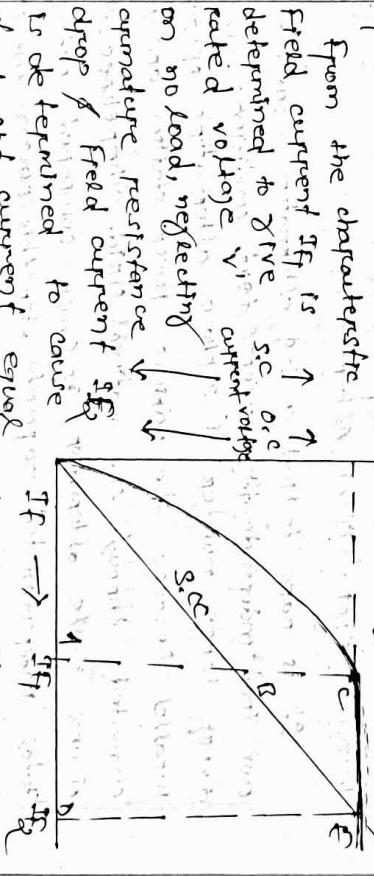 From the characteristic
field current If1 is
determined to give
rated voltage V
on no load, neglecting
armature resistance
drop & field current If2
is determined to cause
short circuit current equal
S.C O.C
current voltage
S.C.C
A
B
C
D
E
If →
If1
If2